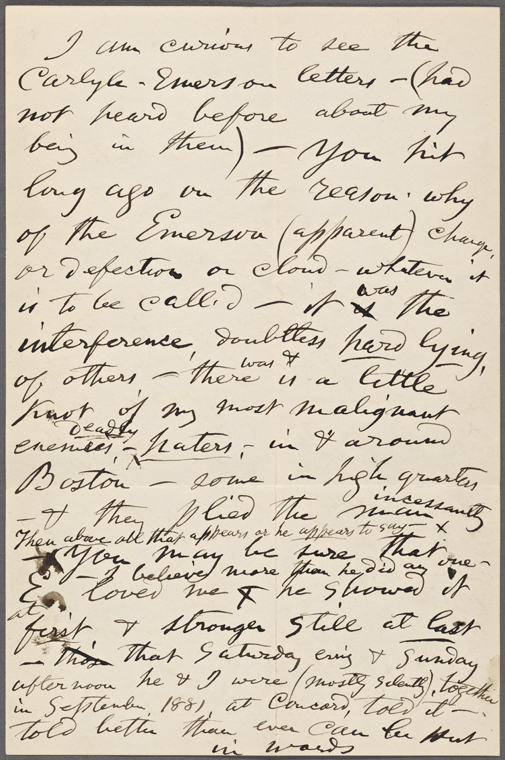 I am curious to see the
Carlyle-Emerson letters – (had
not heard before about my
being in them) – You hit
long ago on the reason-why
of the Emerson (apparent) change,
or defection or cloud – whatever it
is to be call'd – it was the
interference, doubtless hard lying,
of others – there was & is a little
knot of my most malignant
enemies, – deadly haters, – in & around
Boston – some in high quarters
– & they plied the man incessantly
Then above all that appears or he appears to say –
You may be sure that
E. loved me – I believe more than he did any one –
& he showed it
at first & stronger still at last
– that Saturday evn'g & Sunday
afternoon he & I were (mostly silently) together
in September, 1881, at Concord, told it –
told better than ever can be put
in words